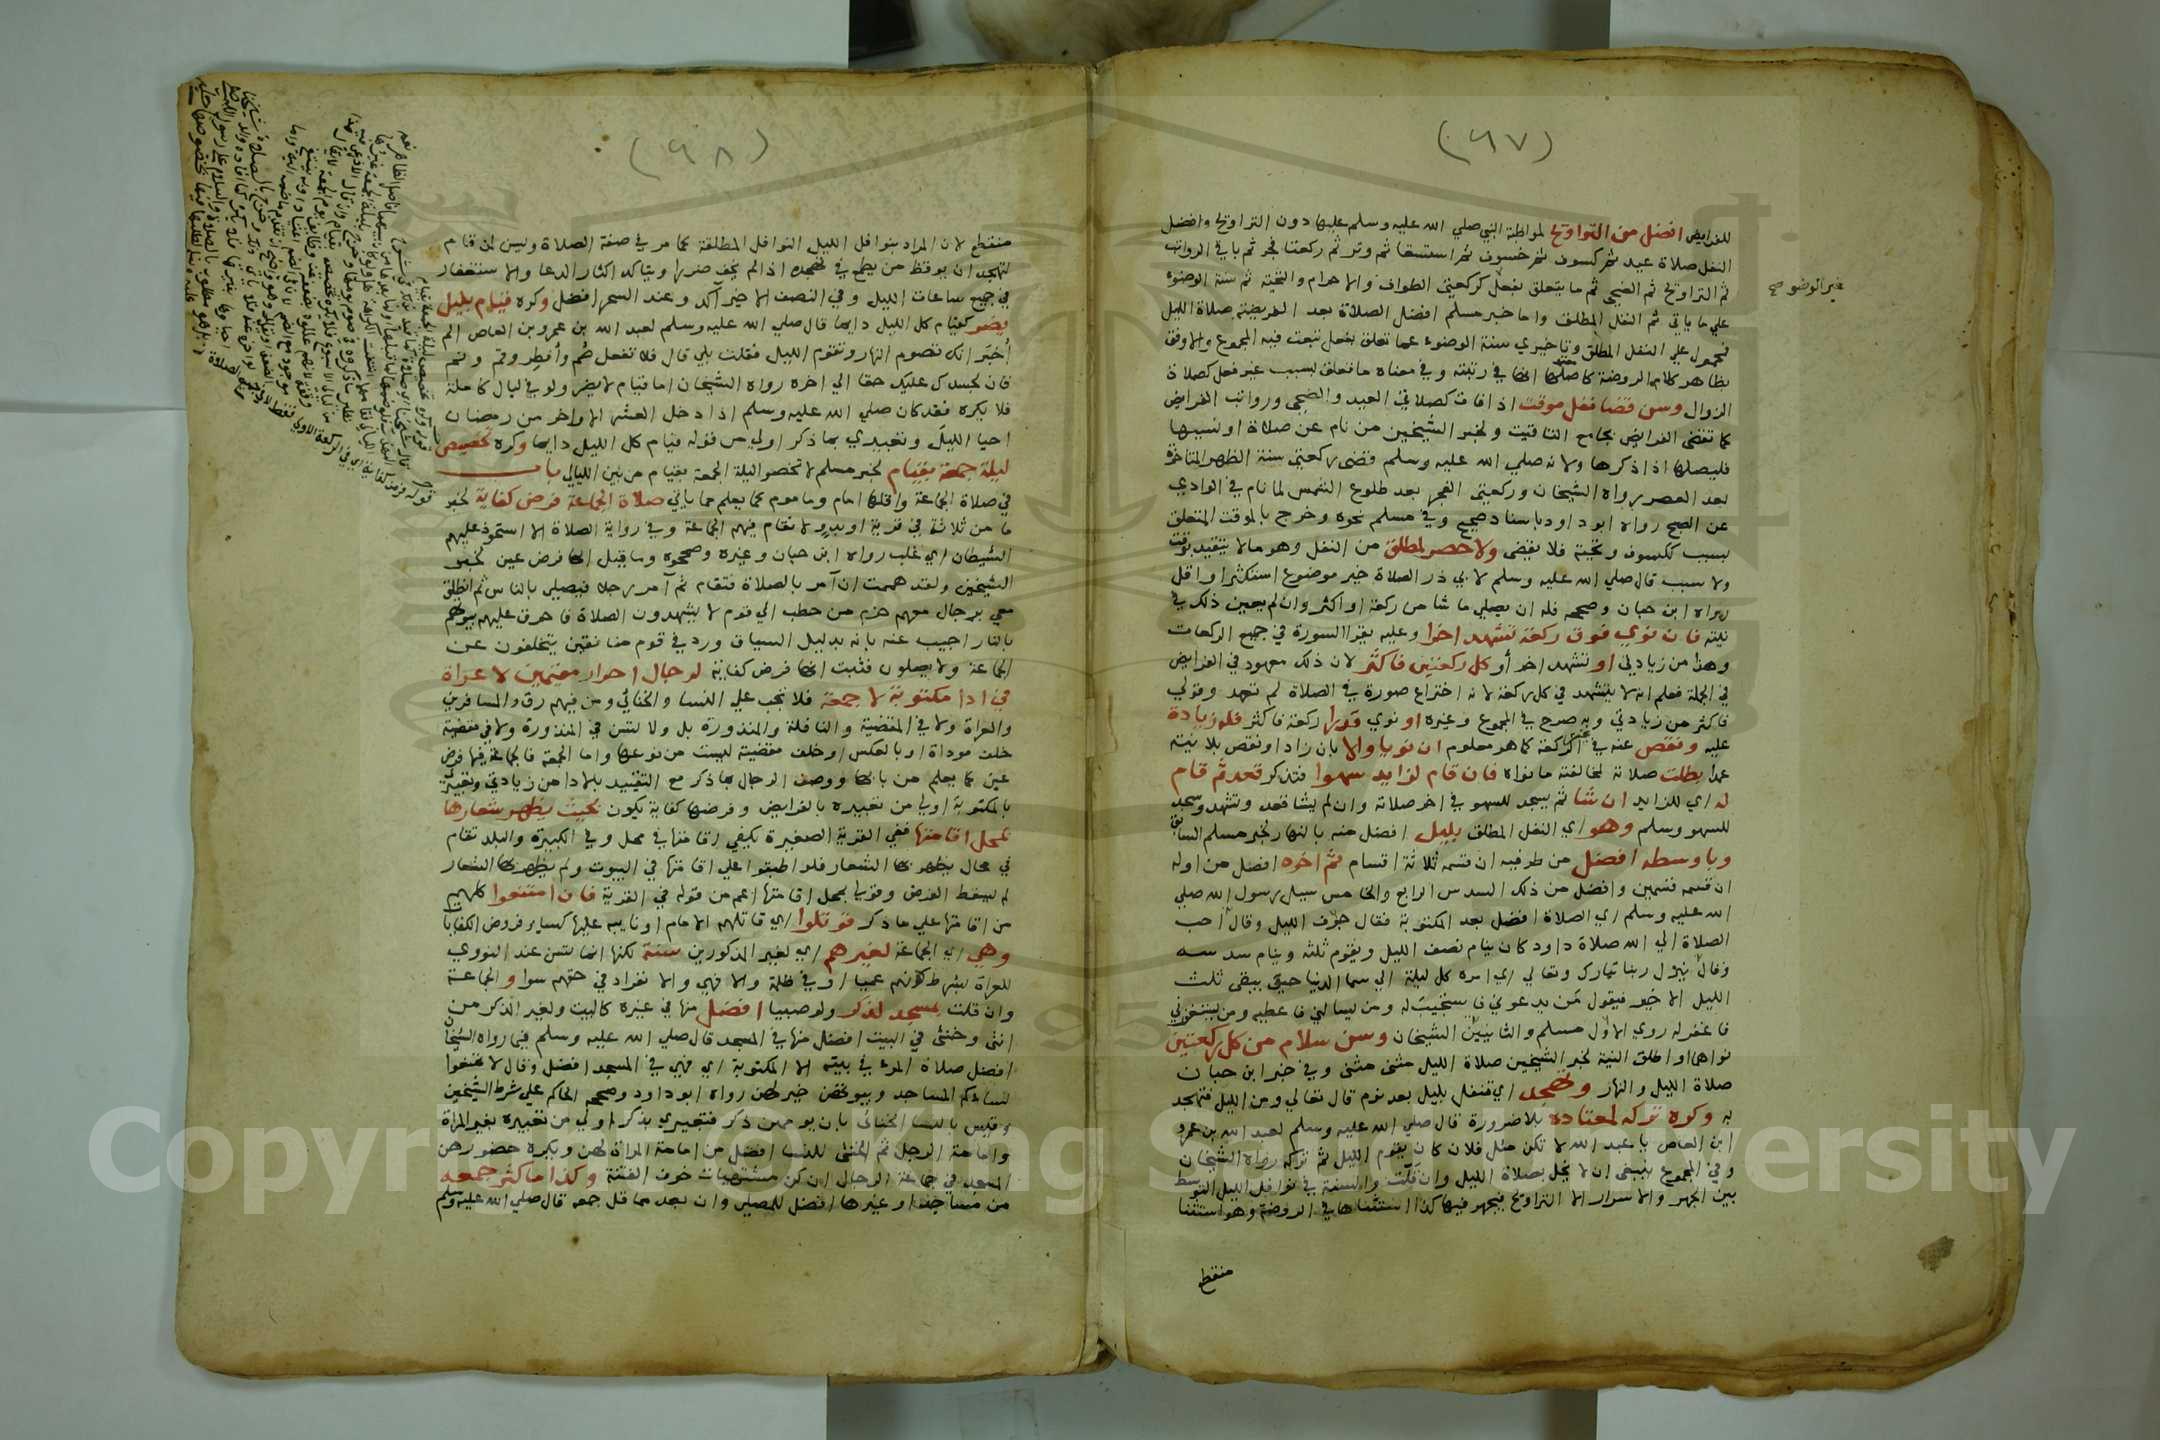 (٩٧)
للفرايض افضل من التراويح لمواظبة النبي صلي الله عليه وسلم عليها دون التراويح وافضل
النفل صلاة عيد ثم كسوف ثم خسوف ثم استسقا ثم وتر ثم ركعتا فجر ثم باقي الرواتب
ثم التراويح ثم الضحي ثم ما يتعلق بفعل كركعتي الطواف والاحرام والتحية ثم سنة الوضوء
علي ما ياتي ثم النفل المطلق واما خبر مسلم افضل الصلاة بعد الفريضة صلاة الليل
فمحمول علي النفل المطلق وتاخيري سنة الوضوء عما تعلق بفعل تبعت فيه المجموع والاوفق
بظاهر كلام الروضة كاصلها انها في رتبته وفي معناه ما تعلق بسبب غير فعل كصلاة
الزوال وسن قضا نفل موقت اذا فات كصلاتي العيد والضحي ورواتب الفرايض
كما تقضي الفرايض بجامع التاقيت ولخبر الشيخين من نام عن صلاة او نسيها
فليصلها اذا ذكرها ولانه صلي الله عليه وسلم قضي ركعتي سنة الظهر المتاخرة
بعد العصر رواه الشيخان وركعتي الفجر بعد طلوع الشمس لما نام في الوادي
عن الصبح رواه ابو داود باسناد صحيح وفي مسلم نحوه وخرج بالموقت المتعلق
بسبب ككسوف وتحية فلا يقضي ولا حصر لمطلق من النفل وهو ما لا يتقيد بوقت
ولا سبب قال صلي الله عليه وسلم لابي ذر الصلاة خير موضوع استكثر او اقل
رواه ابن حبان وصححه فله ان يصلي ما شا من ركعة او اكثر وان لم يعين ذلك في
نيته فان نوي فوق ركعة تشهد اخرا وعليه يقرا السورة في جميع الركعات
وهذا من زيادتي او تشهد اخر أو كل ركعتين فاكثر لان ذلك معهود في الفرايض
في الجملة فعلم انه لا يتشهد في كل ركعة لانه اختراع صورة في الصلاة لم تعهد وقولي
فاكثر من زيادتي وبه صرح في المجموع وغيره او نوي قدرا ركعة فاكثر فله زيادة
عليه ونقص عنه في غير الركعة كما هو معلوم ان نويا والا بان زاد او نقص بلا نية
عمدا بطلت صلاته لمخالفته ما نواه فان قام لزايد سهوا فتذكر قعد ثم قام
له اي للزايد ان شا ثم يسجد للسهو في اخر صلاته وان لم يشا قعد وتشهد وسجد
للسهو وسلم وهو اي النفل المطلق بليل افضل منه بالنهار لخبر مسلم السابق
وباوسطه افضل من طرفيه ان قسمه ثلاثة اقسام ثم اخره افضل من اوله
ان قسمه قسمين وافضل من ذلك السدس الرابع والخامس سيل رسول الله صلي
الله عليه وسلم اي الصلاة افضل بعد المكتوبة فقال جوف الليل وقال احب
الصلاة الي الله صلاة داود كان ينام نصف الليل ويقوم ثلثه وينام سدسه
وقال ينزل ربنا تبارك وتعالي اي امره كل ليلة الي سما الدنيا حين يبقي ثلث
الليل الاخير فيقول من يدعوني فاستجيب له ومن يسالني فاعطيه ومن يستغفرني
فاغفر له روي الاول مسلم والثانيين الشيخان وسن سلام من كل ركعتين
نواها او اطلق النية لخبر الشيخين صلاة الليل مثني مثني وفي خبر ابن حبان
صلاة الليل والنهار وتهجد اي تنفل بليل بعد نوم قال تعالي ومن الليل فتهجد
به وكره تركه لمعتاده بلا ضرورة قال صلي الله عليه وسلم لعبد الله بن عمرو
ابن العاص يا عبد الله لا تكن مثل فلان كان يقوم الليل ثم تركه رواه الشيخان
وفي المجموع ينبغي ان لا يخل بصلاة الليل وان قلت والسنة في نوافل الليل التوسط
بين الجهر والاسرار الا التراويح فيجهر فيها كذا استثناها في الروضة وهو استثنا
منقطع
غير الوضوء صح
(٩٨)
منقطع لان المراد بنوافل الليل النوافل المطلقة كما مر في صفة الصلاة وليس لمن قام
لتهجد ان يوقظ من يطمع في تهجده اذا لم يخف ضررا ويتاكد اكثار الدعا والاستغفار
في جميع ساعات الليل وفي النصف الاخير آكد وعند السحر افضل وكره قيام بليل
يضر كقيام كل الليل دايما قال صلي الله عليه وسلم لعبد الله بن عمرو بن العاص الم
أُخبَر انك تصوم النهار وتقوم الليل فقلت بلي قال فلا تفعل صُم وأفطر وقم ونم
فان لجسدك عليك حقا الي اخره رواه الشيخان اما قيام لا يضر ولو في ليال كاملة
فلا يكره فقد كان صلي الله عليه وسلم اذا دخل العشر الاواخر من رمضان
احيا الليل وتعبيري بما ذكر اولي من قوله قيام كل الليل دايما وكره تخصيص
ليلة جمعة بقيام لخبر مسلم لا تخصوا ليلة الجمعة بقيام من بين الليالي باب
في صلاة الجماعة واقلها امام وماموم كما يعلم مما ياتي صلاة الجماعة فرض كفاية لخبر
ما من ثلاثة في قرية او بدو لا تقام فيهم الجماعة وفي رواية الصلاة الا استحوذ عليهم
الشيطان اي غلب رواه ابن حبان وغيره وصححوه وما قيل انها فرض عين لخبر
الشيخين ولقد هممت ان آمر بالصلاة فتقام ثم آمر رجلا فيصلي بالناس ثم انطلق
معي برجال معهم حزم من حطب الي قوم لا يشهدون الصلاة فاحرق عليهم بيوتهم
بالنار اجيب عنه بانه بدليل السياق ورد في قوم منافقين يتخلفون عن
الجماعة ولا يصلون فثبت انها فرض كفاية لرجال احرار مقيمين لا عراة
في ادا مكتوبة لا جمعة فلا تجب علي النسا والخناثي ومن فيهم رق والمسافرين
والعراة ولا في المقضية والنافلة والمنذورة بل ولا تسن في المنذورة ولا في مقضية
خلف موداة او بالعكس او خلف مقضية ليست من نوعها واما الجمعة فالجماعة فيها فرض
عين كما يعلم من بابها ووصف الرجال بما ذكر مع التقييد بالادا من زيادتي وتعبيري
بالمكتوبة اولي من تعبيره بالفرايض وفرضها كفاية يكون بحيث يظهر شعارها
بمحل اقامتها ففي القرية الصغيرة يكفي اقامتها في محل وفي الكبيرة والبلد تقام
في محال يظهر بها الشعار فلو اطبقوا علي اقامتها في البيوت ولم يظهر بها الشعار
لم يسقط الفرض وقولي بمحل اقامتها اعم من قوله في القرية فان امتنعوا كلهم
من اقامتها علي ما ذكر قوتلوا اي قاتلهم الامام او نايبه عليها كساير فروض الكفايات
وهي اي الجماعة لغيرهم اي لغير المذكورين سنة لكنها انما تسن عند النووي
للعراة بشرط كونهم عميا او في ظلمة والا فهي والانفراد في حقهم سوا والجماعة
وان قلت بمسجد لذكر ولو صبيا افضل منها في غيره كالبيت ولغير الذكر من
انثي وخنثي في البيت افضل منها في المسجد قال صلي الله عليه وسلم فيما رواه الشيخان
افضل صلاة المرء في بيته الا المكتوبة اي فهي في المسجد افضل وقال لا تمنعوا
نساءكم المساجد وبيوتهن خير لهن رواه ابو داود وصححه الحاكم علي شرط الشيخين
وقيس بالنسا الخناثي بان يومهن ذكر فتعبيري بذكر اولي من تعبيره بغير المراة
وامامة الرجل ثم الخنثي للنسا افضل من امامة المراة لهن ويكره حضورهن
المسجد في جماعة الرجال ان كن مشتهيات خوف الفتنة وكذا ما كثر جمعه
من مساجد او غيرها افضل للمصلي وان بعد مما قل جمعه قال صلي الله عليه وسلم
Copyright © King Saud University